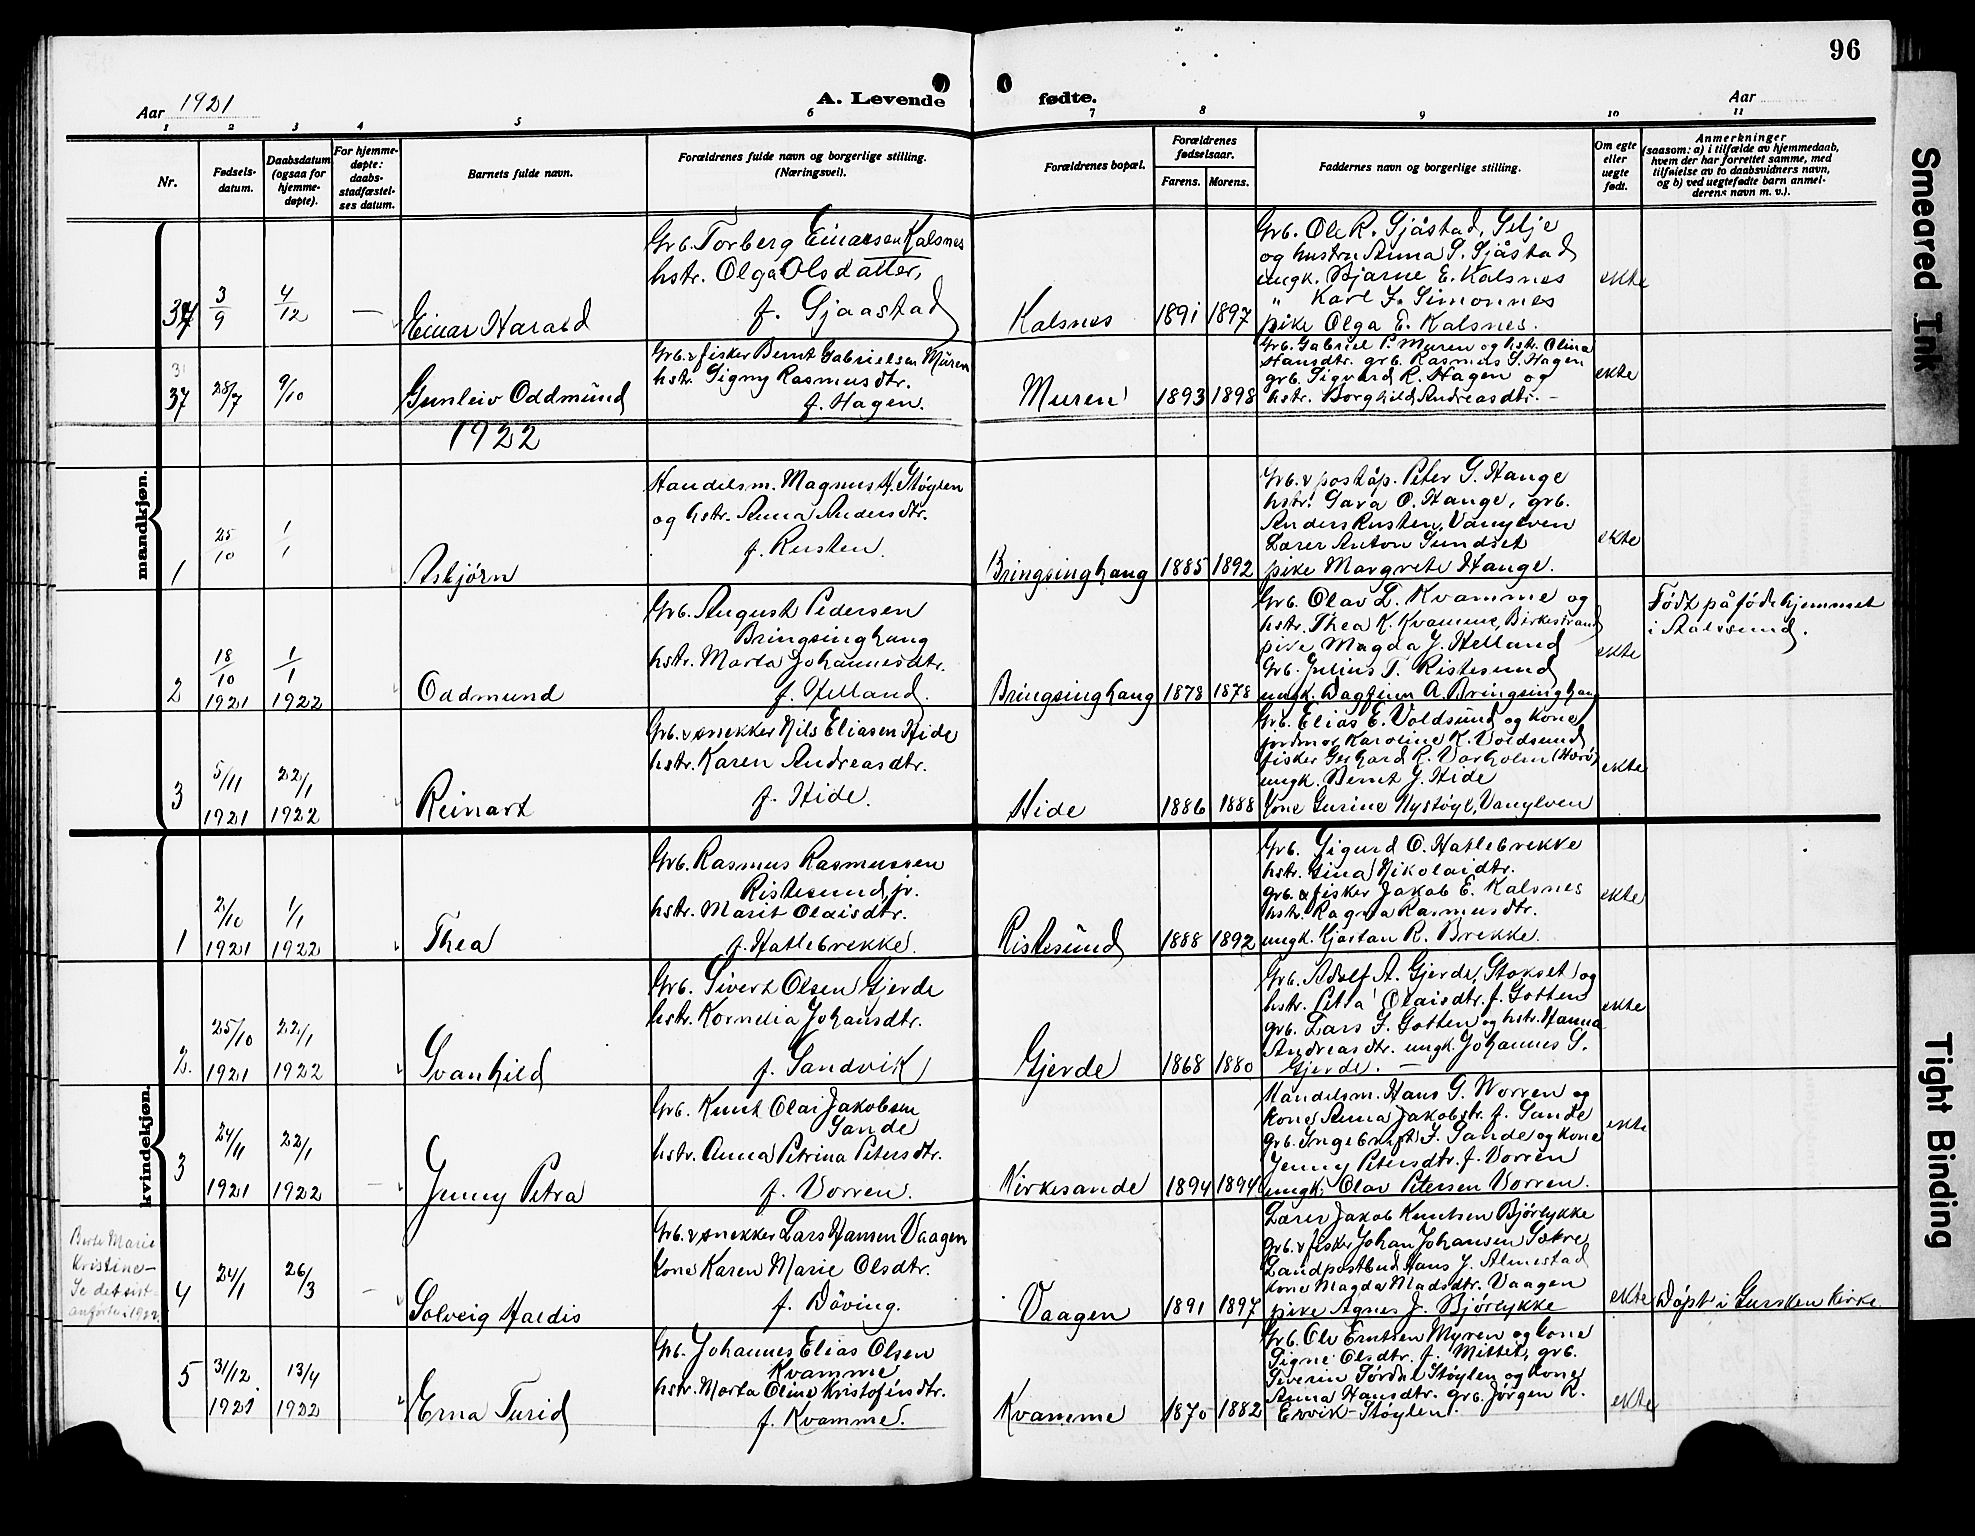 96
Aar 1921
A. Levende
fødte.
Aar
1 2 3 4 5 6 7 8 9 10 11
Nr.
Fødsels-
datum.
Daabsdatum
(ogsaa for
hjemme-
døpte).
For hjemme-
døpte:
daabs-
stadfæstel-
ses datum.
Barnets fulde navn.
Forældrenes fulde navn og borgerlige stilling.
(Næringsvei).
Forældrenes bopæl.
Forældrenes
fødselsaar.
Farens. Morens.
Faddernes navn og borgerlige stilling.
Om egte
eller
uegte
født.
Anmerkninger
(saasom: a) i tilfælde av hjemmedaab,
hvem der har forrettet samme, med
tilføielse av to daabsvidners navn,
og b) ved uegtefødte barn anmel-
derens navn m. v.).
mandkjøn.
3/9 4/12 — Einar Harald
Grb. Torberg Einarsen Kalsnes
hstr. Olga Olsdatter,
f. Gjaastad
Kalsnes 1891 1897
Grb. Ole R. Gjåstad, Gilje
og hustru Anna S. Gjåstad
ungk. Bjarne E. Kalsnes
" Karl J. Simonnes
pike Olga E. Kalsnes.
ekte
31
37 28/7 9/10 Gunleiv Oddmund
Grb. & fisker Bernt Gabrielsen Muren
hstr. Signy Rasmusdtr.
f. Hagen.
Muren 1893 1898
Grb. Gabriel P. Muren og hstr. Olina
Hansdtr. grb. Rasmus S. Hagen
grb. Sigvard R. Hagen og
hstr. Borghild Andreasdtr. —
ekte
1922
1 25/10 1/1 Asbjørn
Handelsm. Magnus H. Støylen
og hstr. Anna Andersdtr.
f. Rusten.
Bringsinghaug 1885 1892
Grb. & poståp. Peter G. Hauge
hstr. Sara O. Hauge, grb.
Anders Rusten, Vanylven
Lærer Anton Sundset
pike Margrete Hauge.
ekte
2 18/10 1921 1/1 1922 Oddmund
Grb. August Pedersen
Bringsinghaug
hstr. Marta Johannesdtr.
f. Helland.
Bringsinghaug 1878 1878
Grb. Olav L. Kvamme og
hstr. Thea K. Kvamme, Birkestrand
pike Magda J. Helland
Grb. Julius T. Ristesund
ungk. Dagfinn A. Bringsinghaug
ekte
Født på fødehjemmet
i Aalesund.
3 5/11 1921 22/1 1922 Reinart
Grb. & snekker Nils Eliasen Hide
hstr. Karen Andreasdtr.
f. Hide.
Hide 1886 1888
Grb. Elias E. Voldsund og kone
jordmor Karoline K. Voldsund
fisker Gerhard R. Varholm (Herø)
ungk. Bernt J. Hide
kone Gurine Nystøyl, Vanylven
ekte
kvindekjøn.
1 2/10 1921 1/1 1922 Thea
Grb. Rasmus Rasmussen
Ristesund, jr.
hstr. Marit Olaisdtr.
f. Hatlebrekke.
Ristesund 1888 1892
Grb. Sigurd O. Hatlebrekke
hstr. Gina Nikolaidtr.
grb. & fisker Jakob E. Kalsnes
hstr. Ragna Rasmusdtr.
ungk. Kjartan R. Brekke.
ekte
2. 25/10 1921 22/1 1922 Svanhild
Grb. Sivert Olsen Gjerde
hstr. Kornelia Johansdtr.
f. Sandvik
Gjerde 1868 1880
Grb. Adolf A. Gjerde, Stokset og
hstr. Petra Olaisdtr. f. Gotten
grb. Lars J. Gotten og hstr. Hanna
Andreasdtr. ungk. Johannes S.
Gjerde. —
ekte
3 24/11 1921 22/1 1922 — Jenny Petra
Grb. Knut Olai Jakobsen
Sande
hstr. Anna Petrina Petersdtr.
f. Vorren.
Kirkesande 1894 1894
Handelsm. Hans G. Vorren og
kone Anna Jakobstr. f. Sande
grb. Ingebrigt J. Sande og kone
Jenny Petersdtr. f. Vorren
ungk. Olav Petersen Vorren.
ekte
Berte Marie
Kristine—
Se det sist
anførte i 1922
4 24/1 26/3 — Solveig Haldis
Grb. & snekker Lars Hansen Vaagen
kone Karen Marie Olsdtr.
f. Döving.
Vaagen 1891 1897
Lærer Jakob Knutsen Bjørlykke
grb. & fisker Johan Johansen Sækre
Landpostbud Hans J. Almestad
kone Magda Madsdtr. Vaagen
pike Agnes J. Bjørlykke
ekte Døpt i Gursken kirke.
5 31/12 1921 13/4 1922 Erna Turid
Grb. Johannes Elias Olsen
Kvamme
hstr. Marta Oline Kristofersdtr.
f. Kvamme.
Kvamme 1870 1882
Grb. Ole Erntsen Myren og kone
Signe Olsdtr. f. Mittet, grb.
Severin Tørdal Støylen og kone
Anna Hansdtr. grb. Jørgen R.
Ervik-Støylen.
ekte
Smeared Ink
Tight Binding